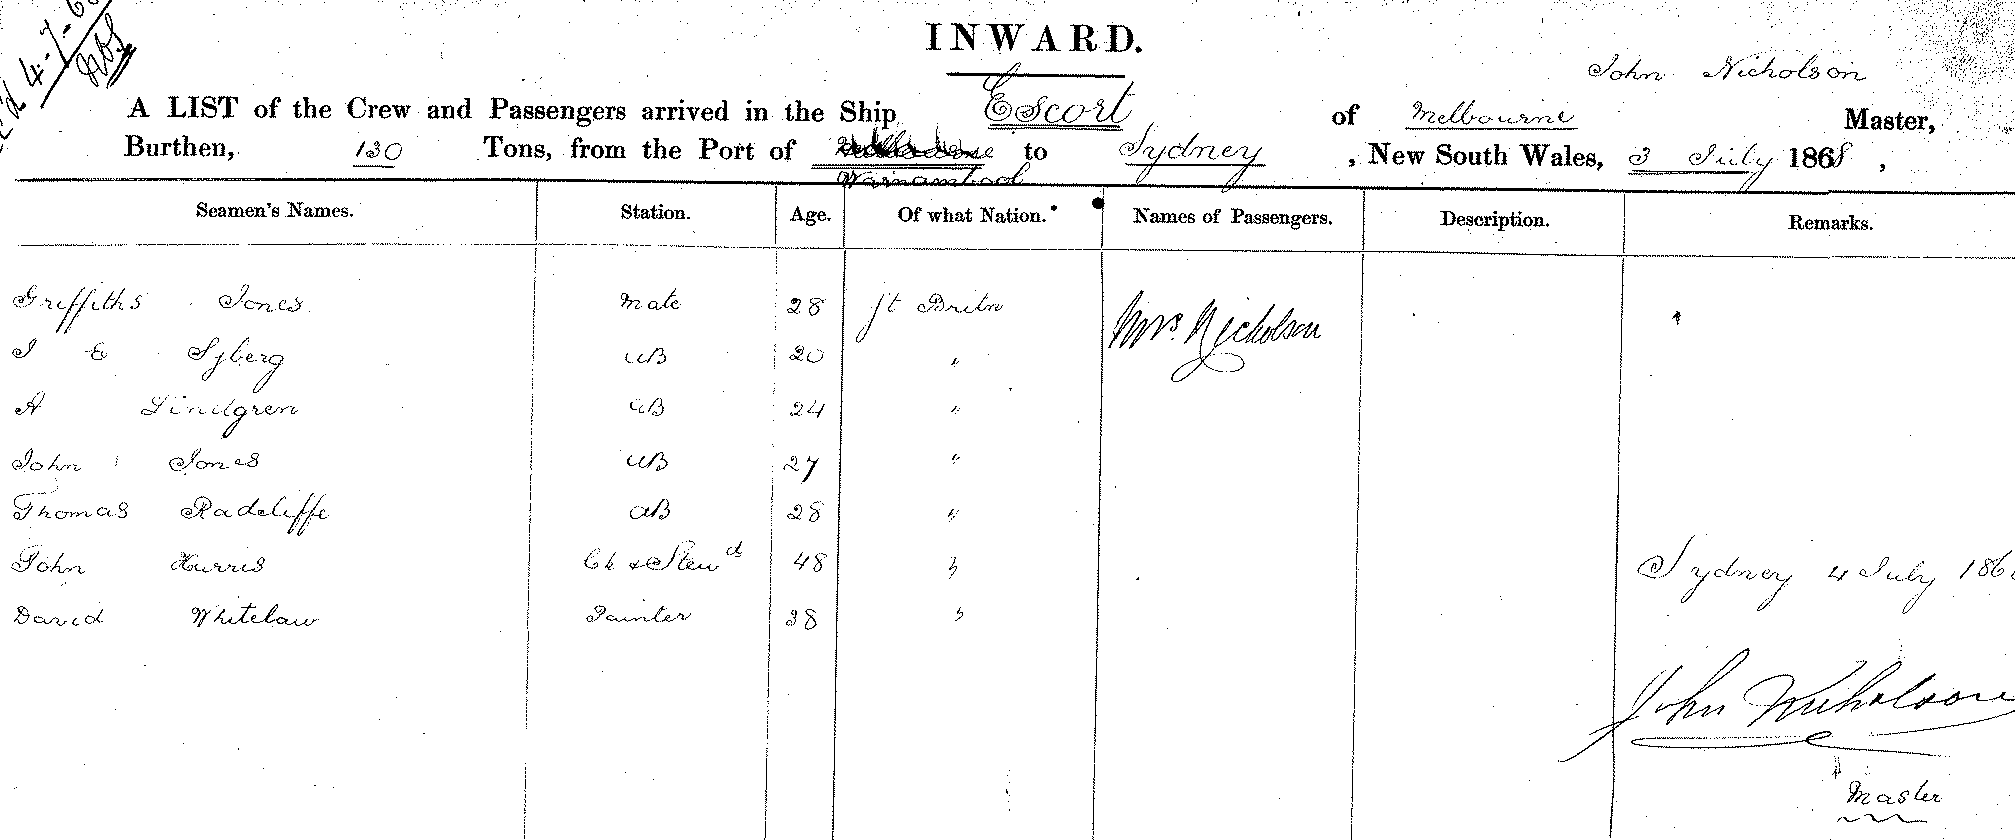 4-7-6
INWARD.
John Nicholson
A LIST of the Crew and Passengers arrived in the Ship Escort of Melbourne Master,
Burthen, 130 Tons, from the Port of Melbourne to Sydney, New South Wales, 3 July 1868,
Warnambool
Seamen's Names. Station. Age. Of what Nation. Names of Passengers. Description. Remarks.
Griffiths Jones Mate 28 Gt Britn Mrs. Nicholson
J E Syberg AB 20 "
A Lindgren AB 24 "
John Jones AB 27 "
Thomas Radcliffe AB 28 "
John Harris Ck & Stewd 48 " Sydney 4 July 186
David Whitelaw Painter 38 "
John Nicholson
Master